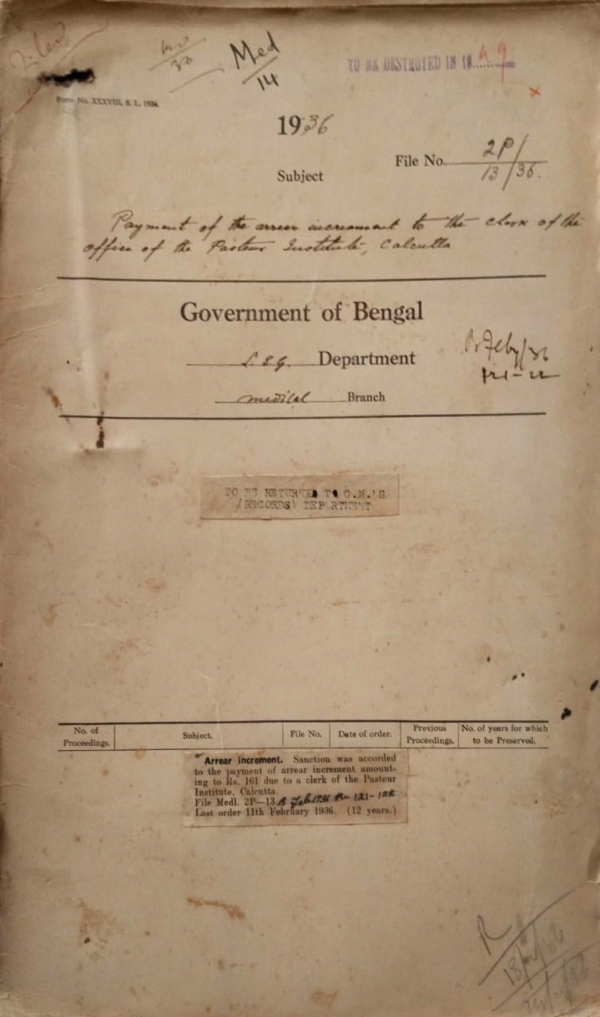 Med
14
TO BE DESTROYED IN 19..49
Form No. XXXVIII, S. I., 1926
1936
File No. 2P/
13/36.
Subject
Payment of the arrear increament to the clerk of the
office of the Pasteur Institute, Calcutta
Government of Bengal
L.S.G. Department
B Feby/36
121-22
medical Branch
TO BE RETURNED TO C.M.'S
(RECORDS) DEPARTMENT
No. of Proceedings. Subject. File No. Date of order. Previous Proceedings. No. of years for which to be Preserved.
Arrear increment. Sanction was accorded
to the payment of arrear increment amount-
ing to Rs. 161 due to a clerk of the Pasteur
Institute, Calcutta.
File Medl. 2P—13 B Feb 1936 Pr 121-122
Last order 11th February 1936. (12 years.)
R